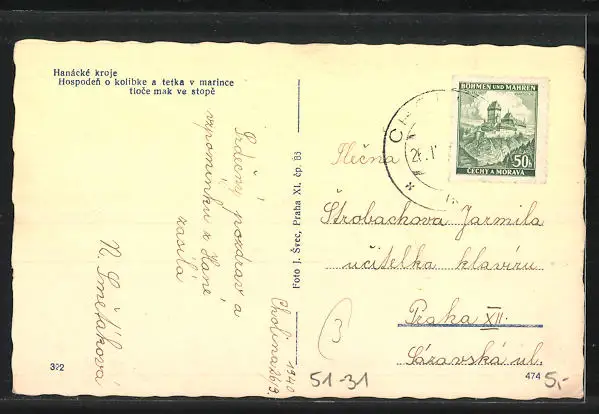 Hanácké kroje
Hospodeň o kolibke a tetka v marince
tloče mak ve stopě
Srdečný pozdrav a
vzpomínku z Hané
zasílá
N. Smětáková
Cholina 26/9.
1940
Foto J. Švec, Praha XI, čp. 85
BÖHMEN UND MÄHREN
50h
ČECHY A MORAVA
Slečna
Štrobachova Jarmila
učitelka klavíru
Praha XII.
Sázavská ul.
3
51-31
322
474
5,-